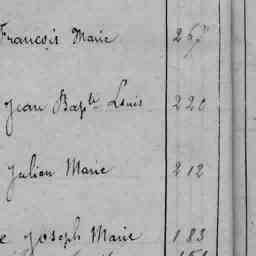 François Marie 267
Jean Bapte Louis 220
Julien Marie 212
e Joseph Marie 183